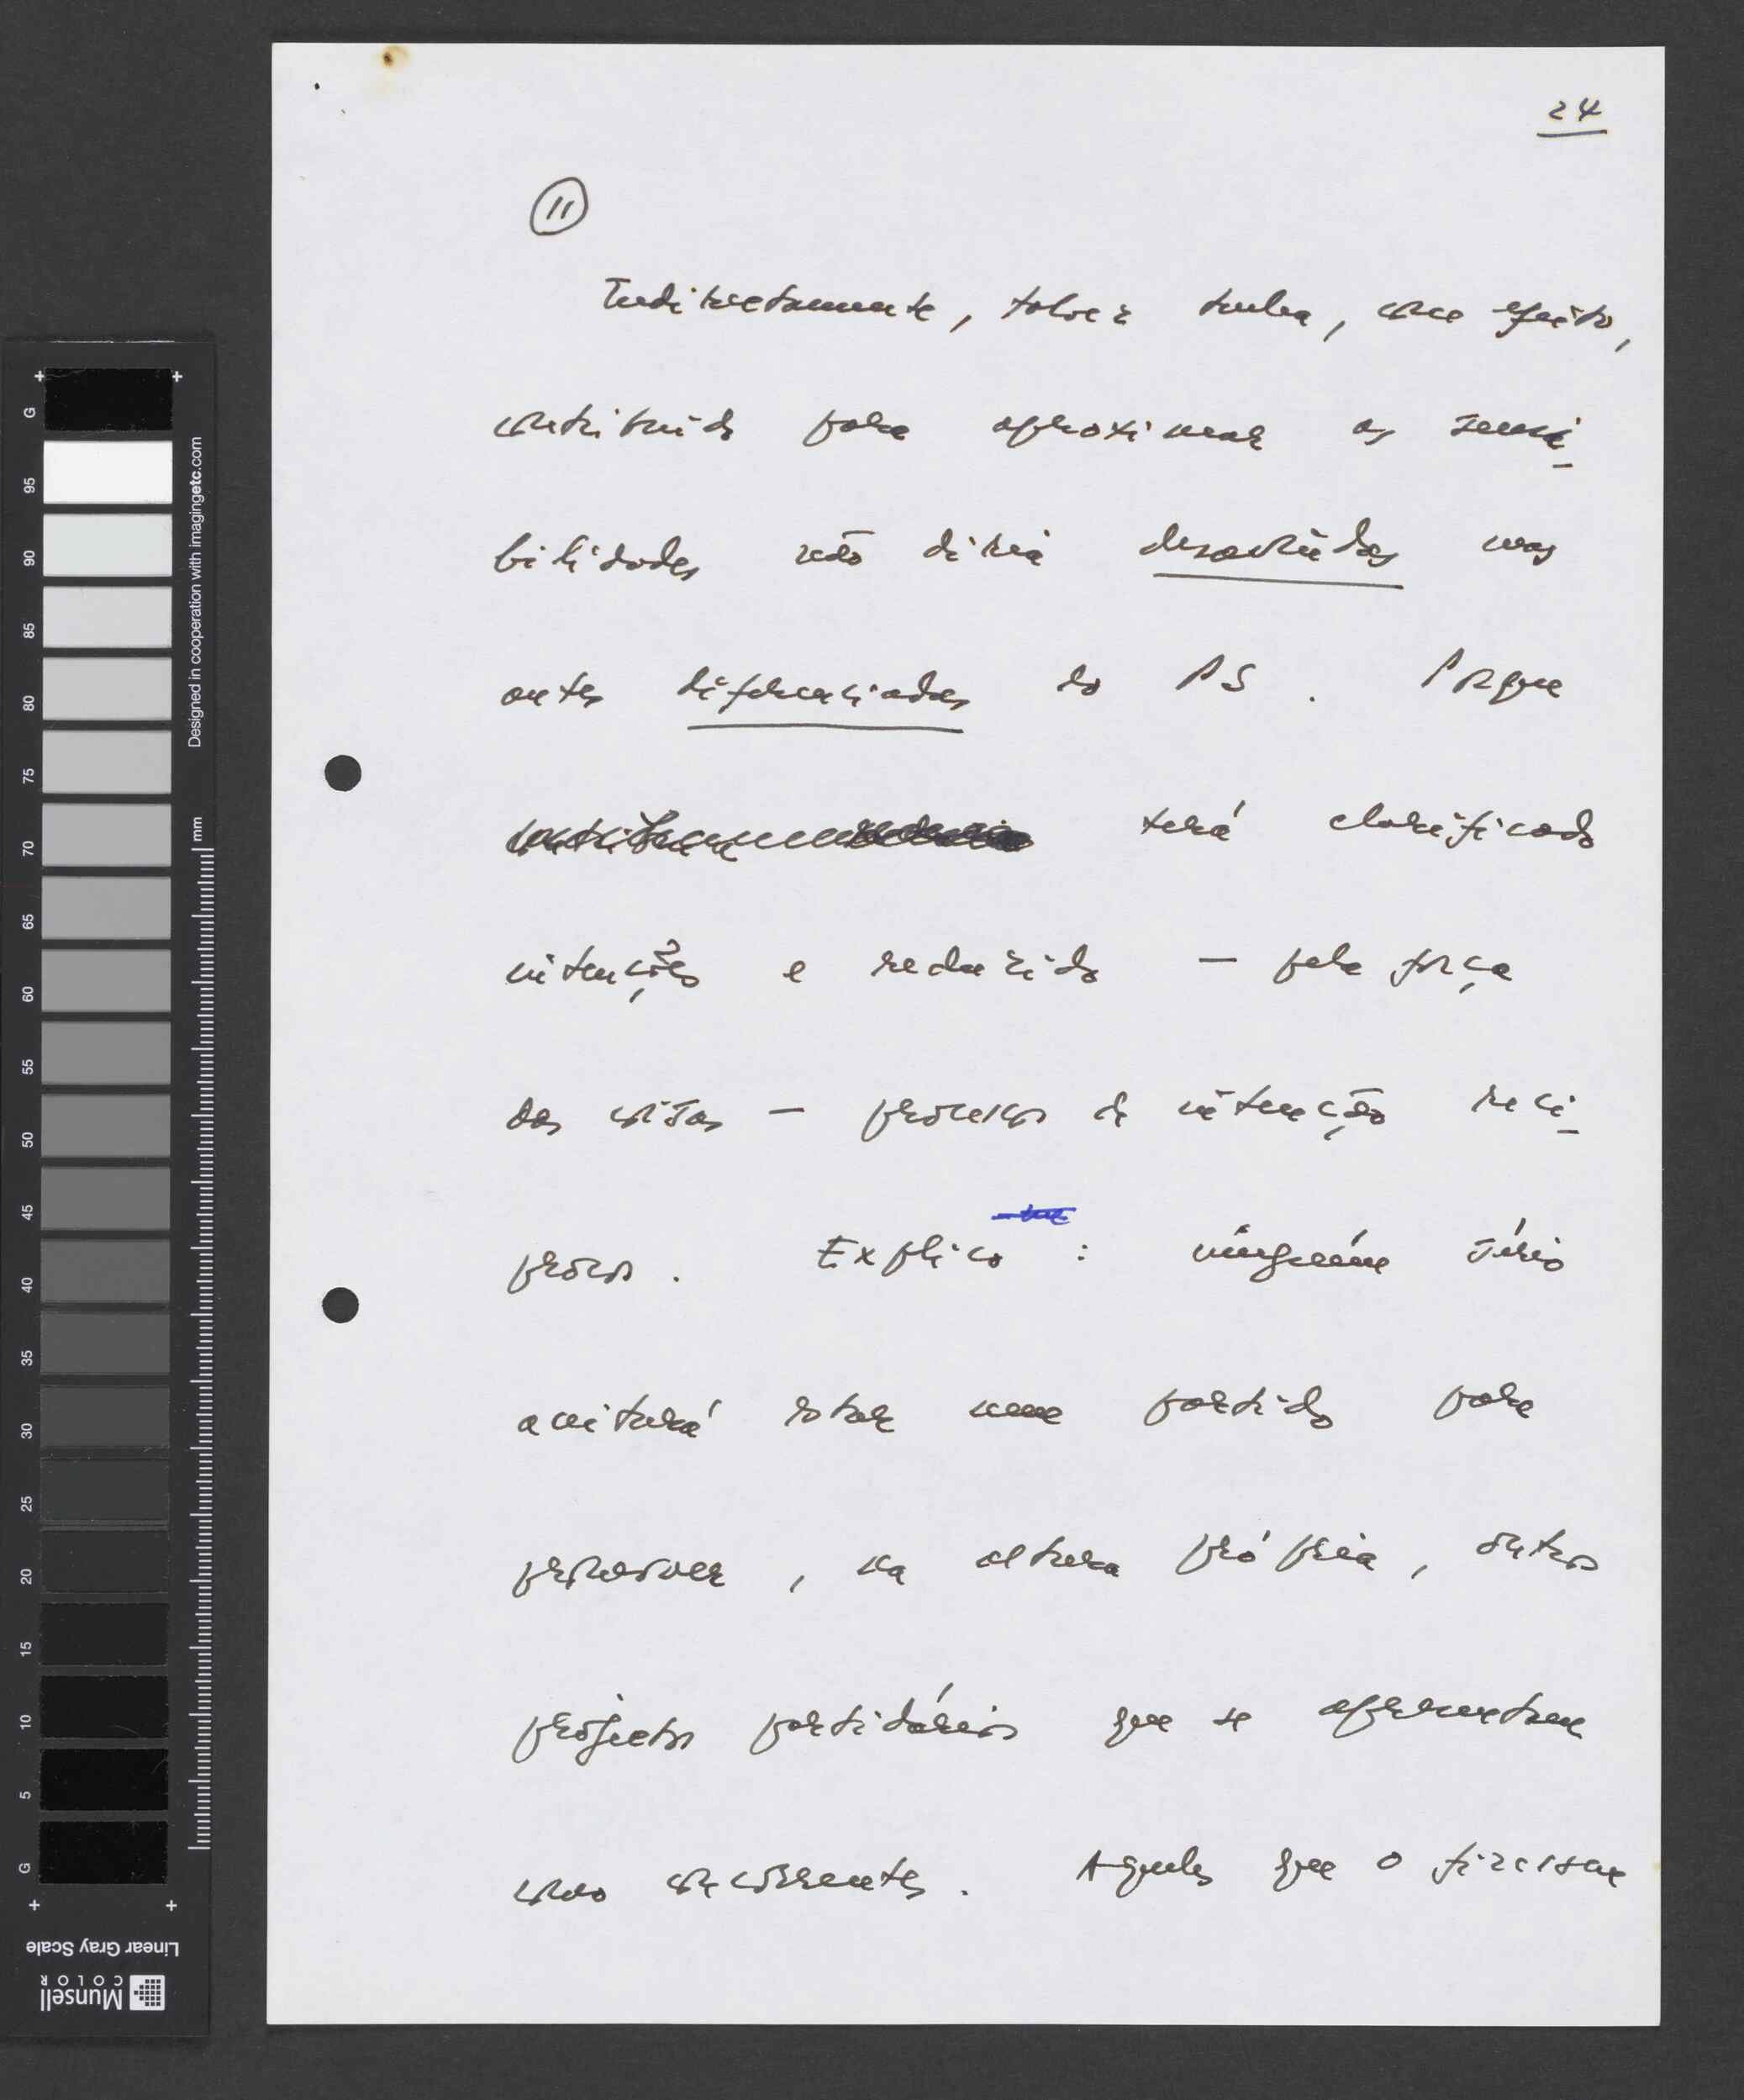 24
11
Indirectamente, talvez tenha, com efeito,
contribuido para aproximar as sensi-
bilidades não diria desavindas mas
antes diferenciadas do PS. Porque
terá clarificado
intenções e reduzido — pela força
das coisas — processos de intenção recí-
procos. Explico : ninguém sério
aceitará votar num partido para
promover, na altura própria, outros
projectos partidários que se apresentam
como concorrentes. Aqueles que o fizessem
G
95
90
85
80
75
70
65
60
55
50
45
40
35
30
25
20
15
10
5
G
mm
Designed in cooperation with imagingetc.com
Linear Gray Scale
Munsell
COLOR